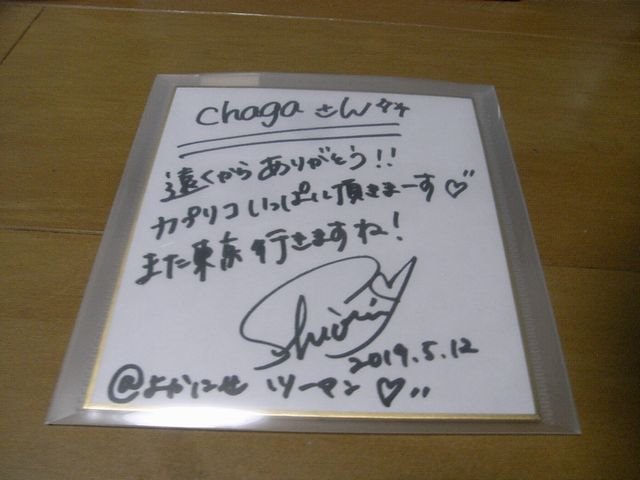 chagaさん
遠くからありがとう!!
カプリコいっぱい頂きまーす♡
また東京行きますね!
Shiori
2019.5.12
@よかにせ ツーマン♡